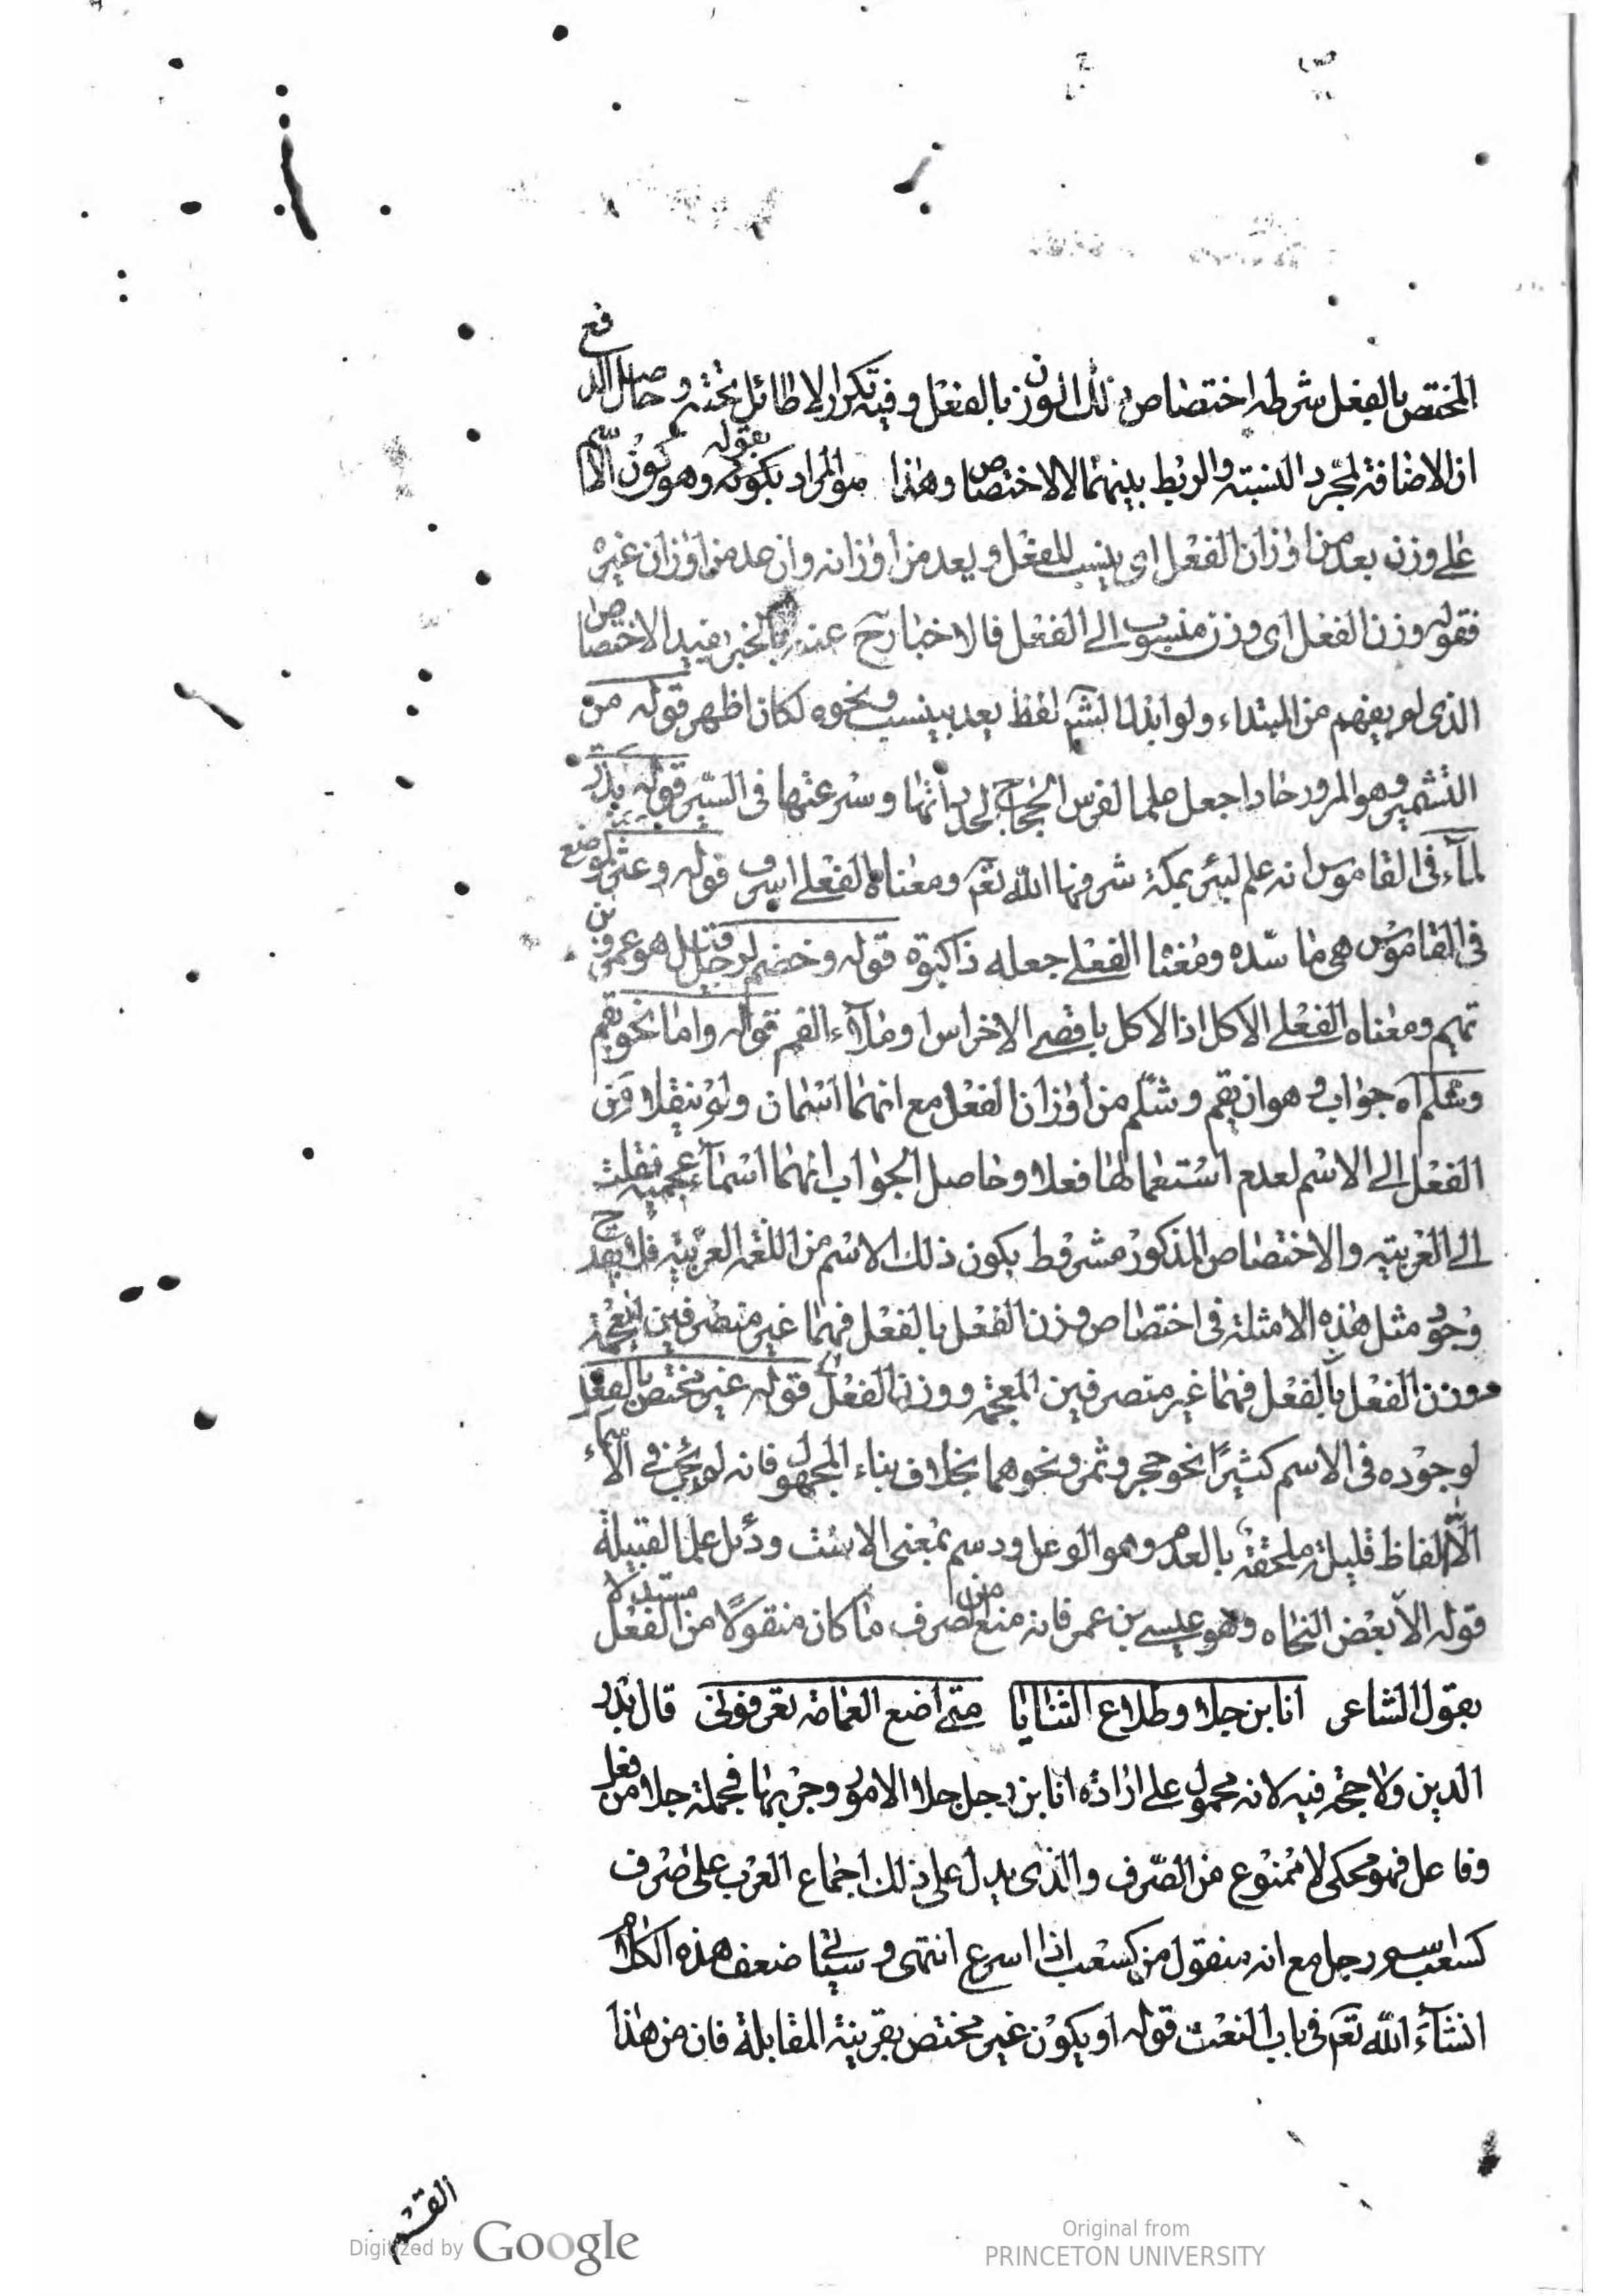 المختص بالفعل شرطه اختصاص ذلك الوزن بالفعل وفيه تكرار لا طائل تحته وحاصل الدفع
ان الاضافة لمجرد النسبة والربط بينهما لا الاختصاص وهذا هو المراد بقوله بكونه وهو كون الاسم
على وزن بعد من اوزان الفعل اى ينسب للفعل ويعد من اوزانه وان عد من اوزان غيره
فقوله وزن الفعل اى وزن منسوب الى الفعل فالاخبار ح عنه بالخبر يفيد الاختصاص
الذى لم يفهم من المبتداء ولو ابدل لفظ يعد بينسب ونحوه لكان اظهر قوله من
التشمير وهو المرور حادا جعل علما لفرس الحجاج لحدتها وسرعتها فى السير قوله بذر
لماء فى القاموس انه علم لبئر بمكة شرفها الله تعم ومعناه الفعلى اسرف قوله وعثر لموضع
فى القاموس هى ماسدة ومعنا الفعلى جعله ذا كبوة قوله وخضم لرجل قيل هو عمرو بن
تميم ومعناه الفعلى الاكل اذا الاكل باقصى الاضراس او ملاء الفم قوله واما نحو بقم
وشلم اه جواب وهو ان بقم وشلم من اوزان الفعل مع انهما اسمان ولم ينقلا من
الفعل الى الاسم لعدم استعمالهما فعلا وحاصل الجواب انهما اسماء عجمية نقلت
الى العربية والاختصاص المذكور مشروط بكون ذلك الاسم من اللغة العربية فلا يقدح
وجود مثل هذه الامثلة فى اختصاص وزن الفعل بالفعل فهما غير منصرفين للعجمة
ووزن الفعل بالفعل فهما غير منصرفين للعجمة ووزن الفعل قوله غير مختص بالفعل
لوجوده فى الاسم كثيرًا نحو حجر وثمر ونحوهما بخلاف بناء المجهول فانه لم يجئ فى الاسماء
الا الفاظ قليلة ملحقة بالعدم وهو الوعل ودسم بمعنى الاست ودئل علما لقبيلة
قوله الا بعض النحاه وهو عيسى بن عمر فانه منع من الصرف ما كان منقولًا من الفعل مستدلا
بقول الشاعر انا ابن جلا وطلاع الثنايا متى اضع العمامة تعرفونى قال بدر
الدين ولا حجة فيه لانه محمول على ارادة انا ابن رجل جلا الامور وجربها فجملة جلا من فعل
وفاعل فهو محكى لا ممنوع من الصرف والذى يدل على ذلك اجماع العرب على صرف
كسعب اسم رجل مع انه منقول من كسعب اذا اسرع انتهى وسيأتى ضعف هذه الكلام
انشاء الله تعم فى باب النعت قوله او يكون غير مختص بقرينة المقابلة فان من هذا
القسم
Digitized by Google
Original from
PRINCETON UNIVERSITY